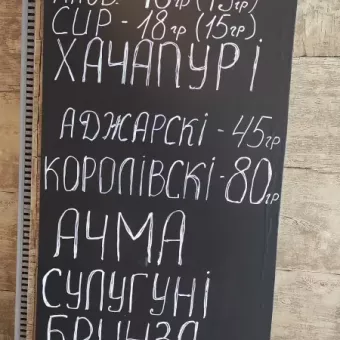 СИР - 18гр (15гр)
ХАЧАПУРІ
АДЖАРСКІ - 45гр
КОРОЛІВСКІ - 80гр
АЧМА
СУЛУГУНІ
БРИНЗА